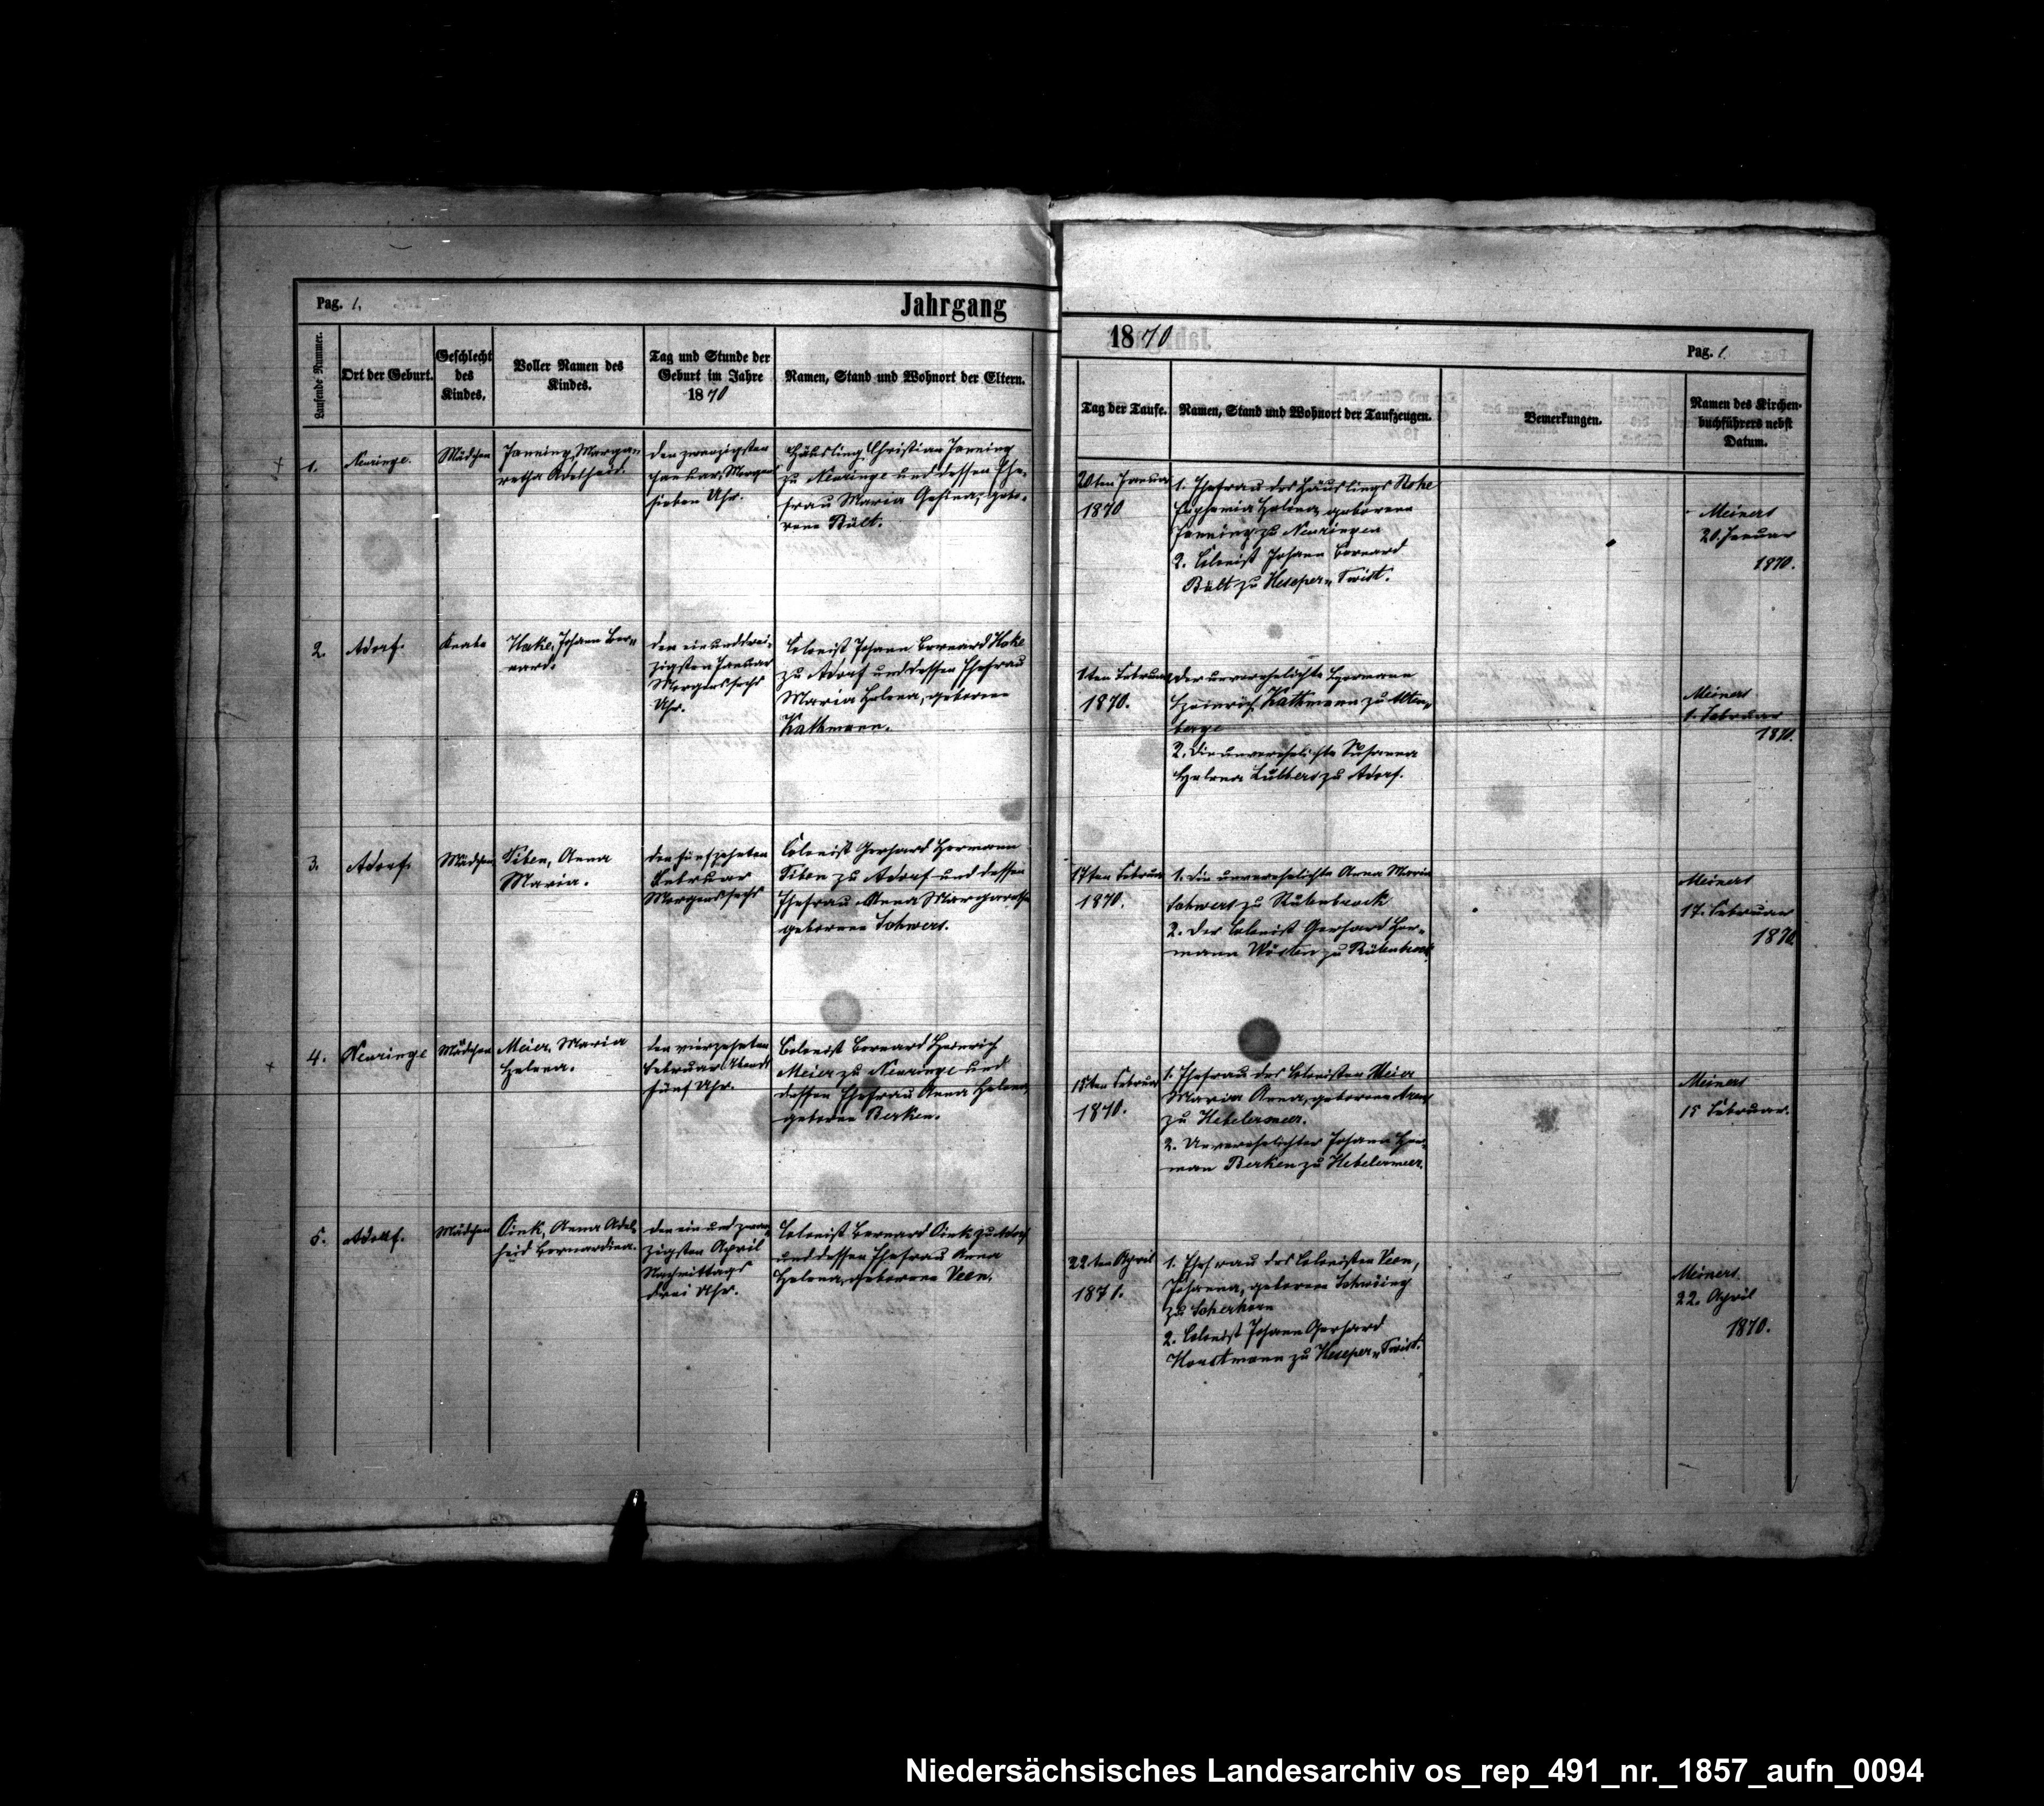 Pag. 1.
Jahrgang
1870
Pag. 1
Laufende Nummer.
Ort der Geburt.
Geschlecht
des
Kindes.
Voller Namen des
Kindes.
Tag und Stunde der
Geburt im Jahre
1870
Namen, Stand und Wohnort der Eltern.
Tag der Taufe.
Namen, Stand und Wohnort der Taufzeugen.
Bemerkungen.
Namen des Kirchen-
buchführers nebst
Datum.
1.
Neuringe.
Mädchen
Janning, Margar
retha Adelheid.
den zwanzigsten
Januar, Morgens
sieben Uhr.
Häusling Christian Janning
zu Neuringe und dessen Ehe-
frau Maria Gesina, gebo-
rene Bült.
20ten Januar
1870
1. Ehefrau des Häuslings
Helena, geborene
Janning zu Neuringen
2. Colonist Johann Bernard
Bült zu Heseper-Twist.
Meiners
20. Januar
1870.
2.
Adorf.
Knabe
Hake, Johann Ber-
nard.
den einunddrei-
zigsten Januar
Morgens sechs
Uhr.
Colonist Johann Bernard Hake
zu Adorf und dessen Ehefrau
Maria Helena, geborene
Kathmann.
1ten Februar
1870.
der unverehelichte Hermann
Heinrich Kathmann zu Alten-
berge
2. die unverehelichte Susanna
Helena Lübbers zu Adorf.
Meiners
1. Februar
1870
3.
Adorf.
Mädchen
Siben, Anna
Maria.
den fünfzehnten
Februar
Morgens sechs
Colonist Gerhard Hermann
Siben zu Adorf und dessen
Ehefrau Anna Margaretha
geborene Schwers.
17ten Februar
1870.
1. die unverehelichte Anna Maria
Schwers zu Rütenbrock
2. der Colonist Gerhard Her-
mann Wösten zu Rütenbrock
Meiners
17. Februar
1870
4.
Neuringe
Mädchen
Meier, Maria
Helena.
den vierzehnten
Februar Abends
fünf Uhr.
Colonist Bernard Heinrich
Meier zu Neuringe und
dessen Ehefrau Anna Helena,
geborene Berken.
15ten Februar
1870.
1. Ehefrau des Colonisten Meier
Maria Anna, geborene
zu Hebelermeer.
2. Unverehelichter Johann Her-
man Berken zu Hebelermeer.
Meiners
15 Februar.
5.
Adorf.
Mädchen
Oink, Anna Adel-
heid Bernardina.
den ein und zwan-
zigsten April
Nachmittags
drei Uhr.
Colonist Bernard Oink zu Adorf
und dessen Ehefrau Anna
Helena, geborene Veen.
22ten April
1871.
1. Ehefrau des Colonisten Veen,
Johanna, geborene Schwieng
zu Scherhorn
2. Colonist Johann Gerhard
Horstmann zu Heseper-Twist.
Meiners.
22. April
1870.
Niedersächsisches Landesarchiv os_rep_491_nr._1857_aufn_0094